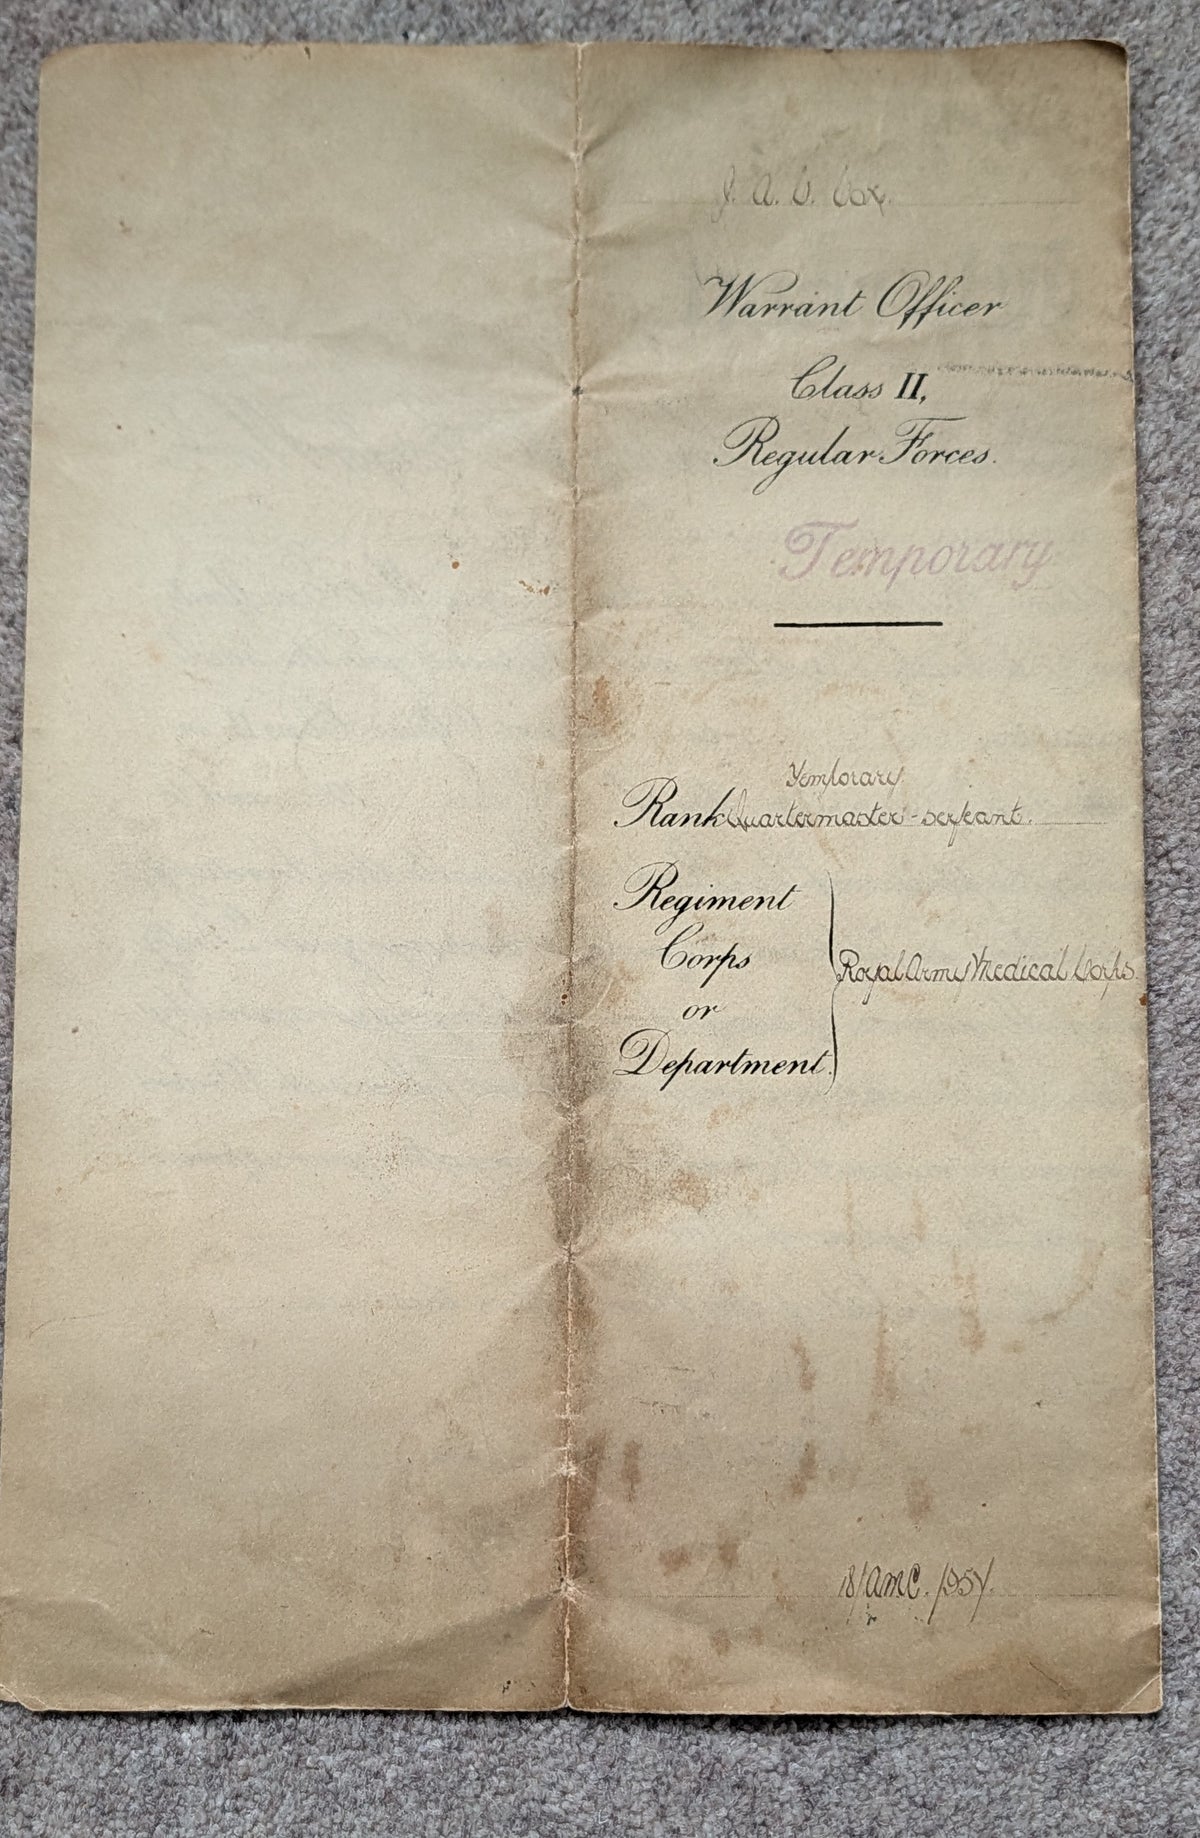 J. A. C. Cox.
Warrant Officer
Class II,
Regular Forces.
Temporary
Temporary
Rank Quartermaster-serjeant.
Regiment
Corps
or
Department.
Royal Army Medical Corps.
18/AMC./957.